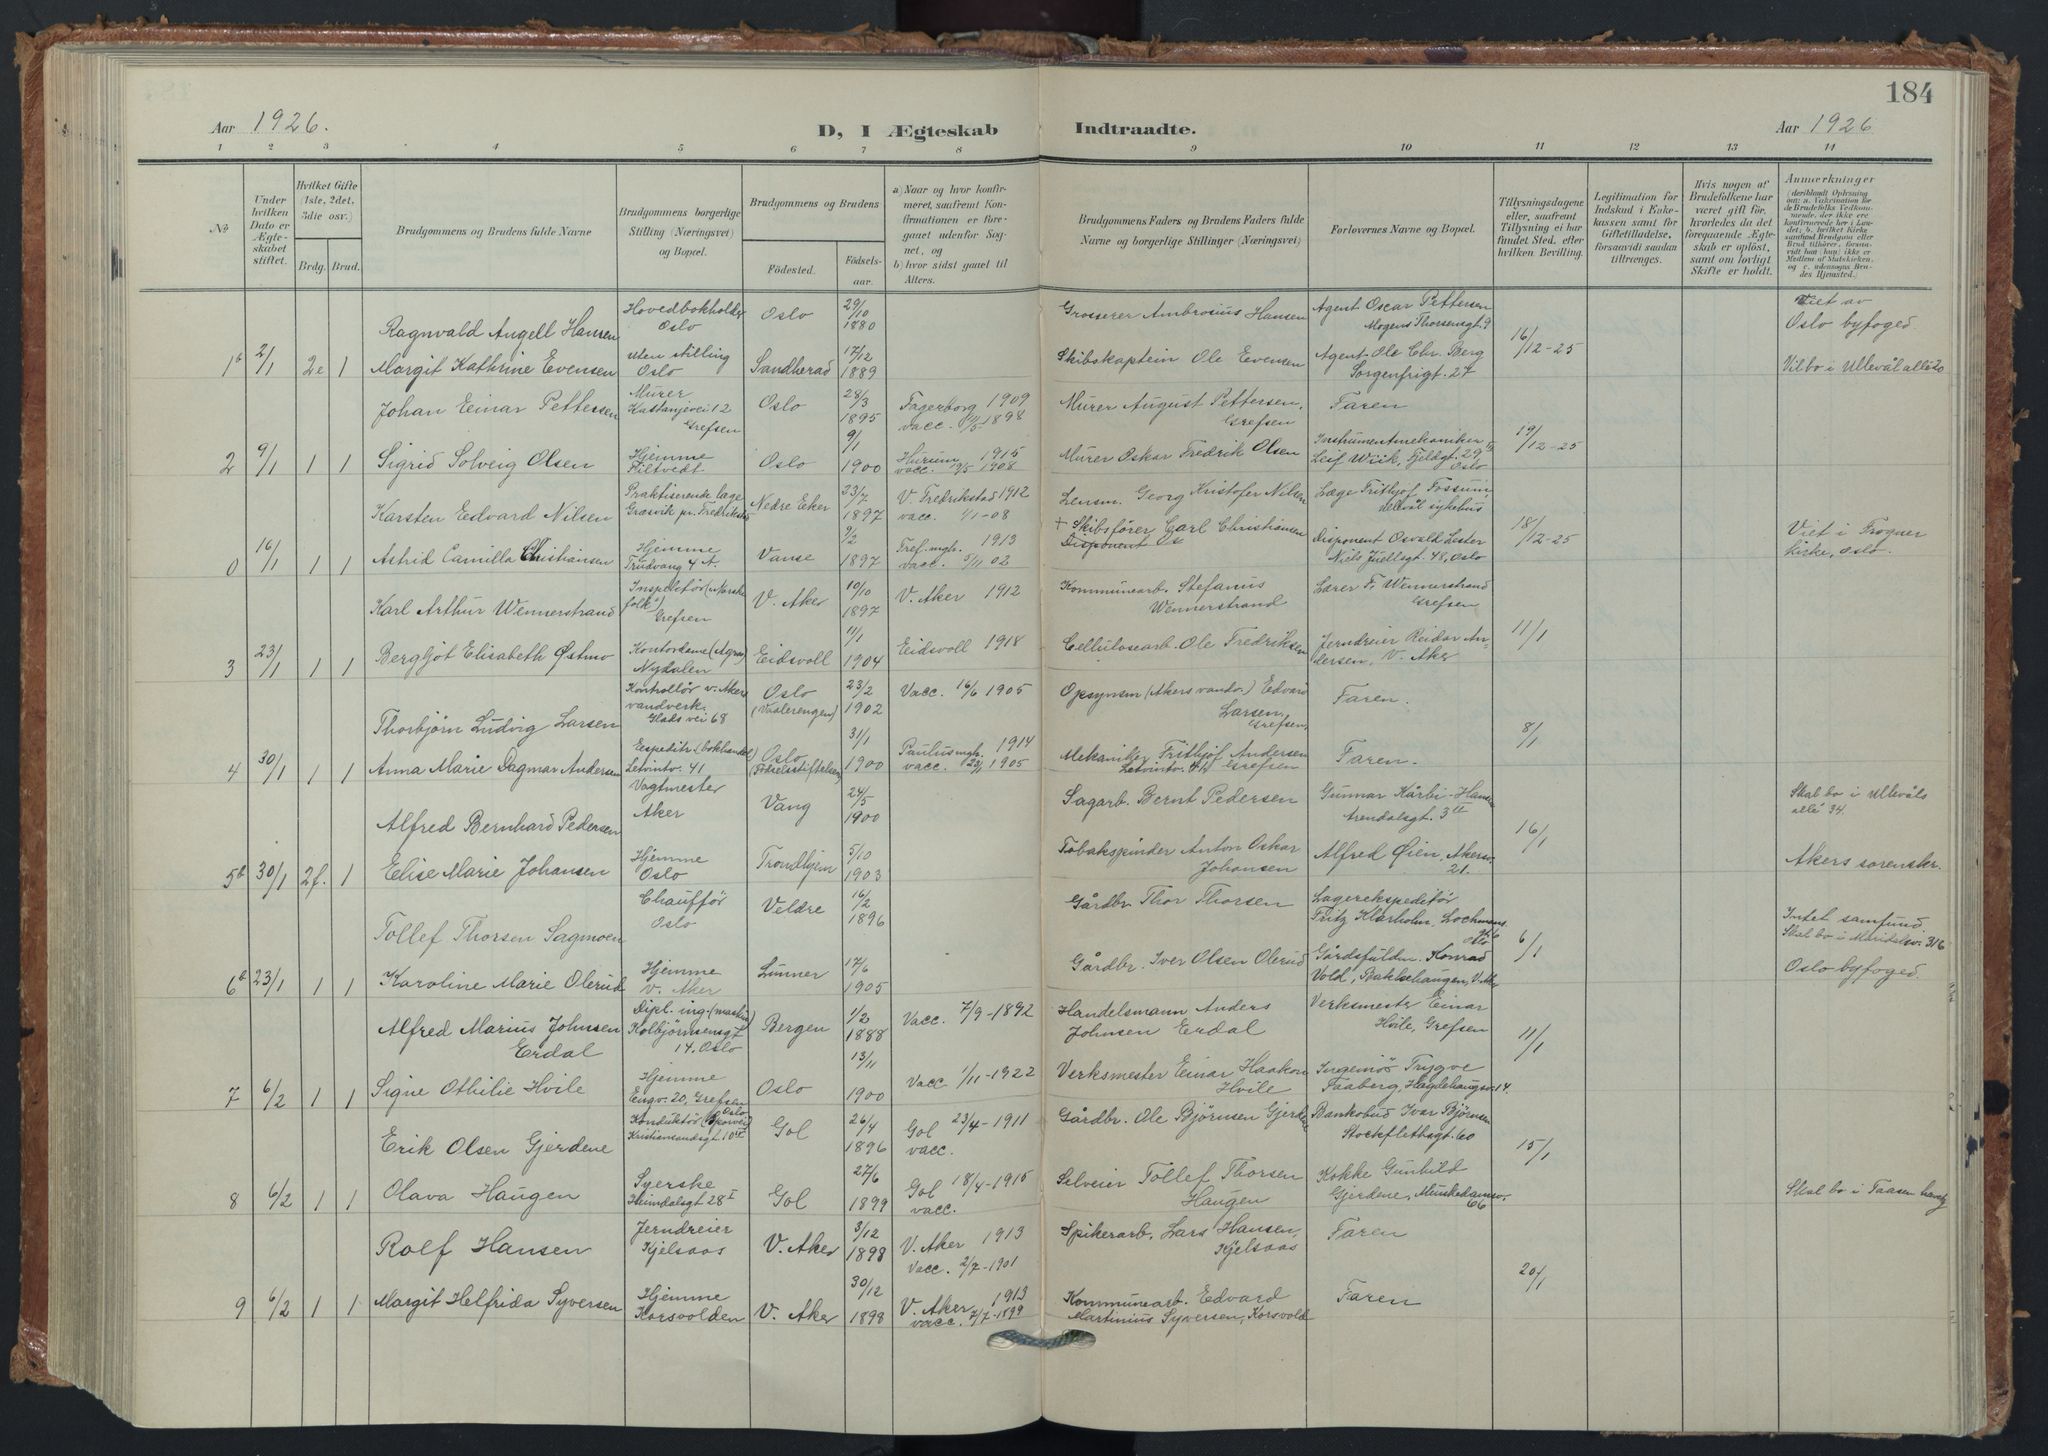 184
Aar 1926.
D, I Ægteskab Indtraadte.
Aar 1926
1 2 3 4 5 6 7 8 9 10 11 12 13 14
№
Under hvilken Dato er Ægteskabet stiftet.
Hvilket Gifte (1ste, 2det, 3die osv.)
Brdg. Brud.
Brudgommens og Brudens fulde Navne
Brudgommens borgerlige Stilling (Næringsvei) og Bopæl.
Brudgommens og Brudens
Fødested. Fødselsaar.
a) Naar og hvor konfirmeret, saafremt Konfirmationen er foregaaet udenfor Sognet, og
b) hvor sidst gaaet til Alters.
Brudgommens Faders og Brudens Faders fulde Navne og borgerlige Stillinger (Næringsvei)
Forlovernes Navne og Bopæl.
Tillysningsdagene eller, saafremt Tillysning ei har fundet Sted, efter hvilken Bevilling.
Legitimation for Indskud i Enkekassen samt for Giftetilladelse, forsaavidt saadan tiltrænges.
Hvis nogen af Brudefolkene har været gift før, hvorledes da det foregaaende Ægteskab er opløst, samt om lovligt Skifte er holdt.
Anmærkninger
Ragnvald Angell Hansen
Hovedbokholder Oslo
Oslo
29/10 1880
Grosserer Ambrosius Hansen
Agent Oscar Pettersen
Mogens Thorsensgt 9
Viet av Oslo byfoged
1b 2/1 2e 1
Margit Kathrine Evensen
Uten stilling Oslo
Sandherad
17/12 1889
Skibskaptein Ole Evensen
Agent Ole Chr. Berg
Sorgenfrigt. 27
16/12-25
Vil bo i Ullevål allé 20
Johan Einar Pettersen
Murer
Kastanjevei 12
Grefsen
Oslo
28/3 1895
Fagerborg 1909
vacc. 1898
Murer August Pettersen, Grefsen
Faren
2 9/1 1 1
Sigrid Solveig Olsen
Hjemme
Filtvedt
Oslo
9/1 1900
Hurum 1915
vacc. 1908
Murer Oskar Fredrik Olsen
Instrumentmekaniker
Leif Wiik, Fjeldgt. 29 III
Oslo
19/12-25
Karsten Edvard Nilsen
Praktiserende læge
Græsvik pr. Fredrikstad
Nedre Eiker
23/7 1897
V. Fredrikstad 1912
vacc. 1/1-08
Lensm. Georg Kristofer Nilsen
Læge Frithjof Fossum,
Ullevål sykehus
0 16/1 1 1
Astrid Camilla Christiansen
Hjemme
Trudvang 4 A.
Vanse
9/2 1897
Tref. mgh. 1913
vacc. 5/11 02
+ Skibsfører Carl Christiansen
Disponent Osvald Lester
Niels Juelsgt. 48, Oslo
18/12-25
Viet i Frogner kirke, Oslo.
Karl Arthur Wennerstrand
Inspektør (Norske folk)
Grefsen
V. Aker
10/10 1897
V. Aker 1912
Kommunearb. Stefanus Wennerstrand
Lærer Fr. Wennerstrand
Grefsen
3 23/1 1 1
Bergljot Elisabeth Østmo
Kontordame (Agra)
Nydalen
Eidsvoll
11/1 1904
Eidsvoll 1918
Cellulosearb. Ole Fredriksen
Jerndreier Reidar Andersen, V. Aker
11/1
Thorbjørn Ludvig Larsen
Kontrollør v. Akers vandverk.
Glads vei 68
Oslo (Vaalerengen)
23/2 1902
Vacc. 16/6 1905
Opsynsm (Akers vandv.) Edvard Larsen, Grefsen,
Faren.
4 30/1 1 1
Anna Marie Dagmar Andersen
Expeditr. (bokhandel)
Letvintv. 41
Oslo (Fødselsstiftelsen)
31/1 1900
Paulusmgh. 1914
vacc. 23/1 1905
Mekaniker Frithjof Andersen
Letvintv. 41 Grefsen
Faren.
8/1
Alfred Bernhard Pedersen
Vagtmester
Aker
Vang
24/5 1900
Sagarb. Bernt Pedersen
Gunnar Kårbi-Hansen
Arendalsgt. 3 II
Skal bo i Ullevåls allé 34.
5b 30/1 2f. 1
Elise Marie Johansen
Hjemme
Oslo
Trondhjem
5/10 1903
Tobakspinder Anton Oskar Johansen
Alfred Øien, Akersv. 21.
16/1
Akers sorenskr.
Tollef Thorsen Sagmoen
Chauffør
Oslo
Veldre
16/2 1896
Gårdbr. Thor Thorsen
Lagerekspeditør
Fritz Klarholm, Lochmans gt 6 Oslo
Intet samfund.
Skal bo i Maridalsv. 316
6b 23/1 1 1
Karoline Marie Olerud
Hjemme
V. Aker
Lunner
17/6 1905
Gårdbr. Iver Olsen Olerud
Gårdsfuldm. Konrad
Vold, Bakkehaugen, V. Aker
6/1
Oslo byfoged.
Alfred Marius Johnsen Erdal
Dipl. ing. (maskin)
Kolbjørnsensgt 14. Oslo
Bergen
1/2 1888
Vacc. 7/9-1892
Handelsmann Anders Johnsen Erdal
Verksmester Einar Hvile, Grefsen
7 6/2 1 1
Signe Othilie Hvile
Hjemme
Engv. 20, Grefsen
Oslo
13/11 1900
Vacc 1/11-1922
Verksmester Einar Haakon Hvile
Ingeniør Trygve
Faaberg, Haglehaugsv. 14.
11/1
Erik Olsen Gjerdene
Konduktør (Oslo Sporvei)
Kristiansandsgt 10 II
Gol
26/4 1896
Gol 23/4-1911
vacc.
Gårdbr. Ole Bjørnsen Gjerdene
Bankobud Ivar Bjørnsen
Stockflethsgt. 60
8 6/2 1 1
Olava Haugen
Syerske
Heimdalsgt 28 I
Gol
27/6 1899
Gol 18/4-1915
vacc.
Selveier Tollef Thorsen Haugen
Kokke Gunhild
Gjerdene, Munkedamsv. 66
15/1
Skal bo i Taasen haveby
Rolf Hansen
Jerndreier
Kjelsaas
V. Aker
3/12 1898
V. Aker 1913
Vacc. 2/7-1901
Spikerarb. Lars Hansen, Kjelsaas
Faren
9 6/2 1 1
Margit Helfrida Syversen
Hjemme
Korsvolden
V. Aker
30/12 1898
V. Aker 1913
vacc. 7/7-1899
Kommunearb. Edvard
Martinius Syversen, Korsvold
Faren
20/1